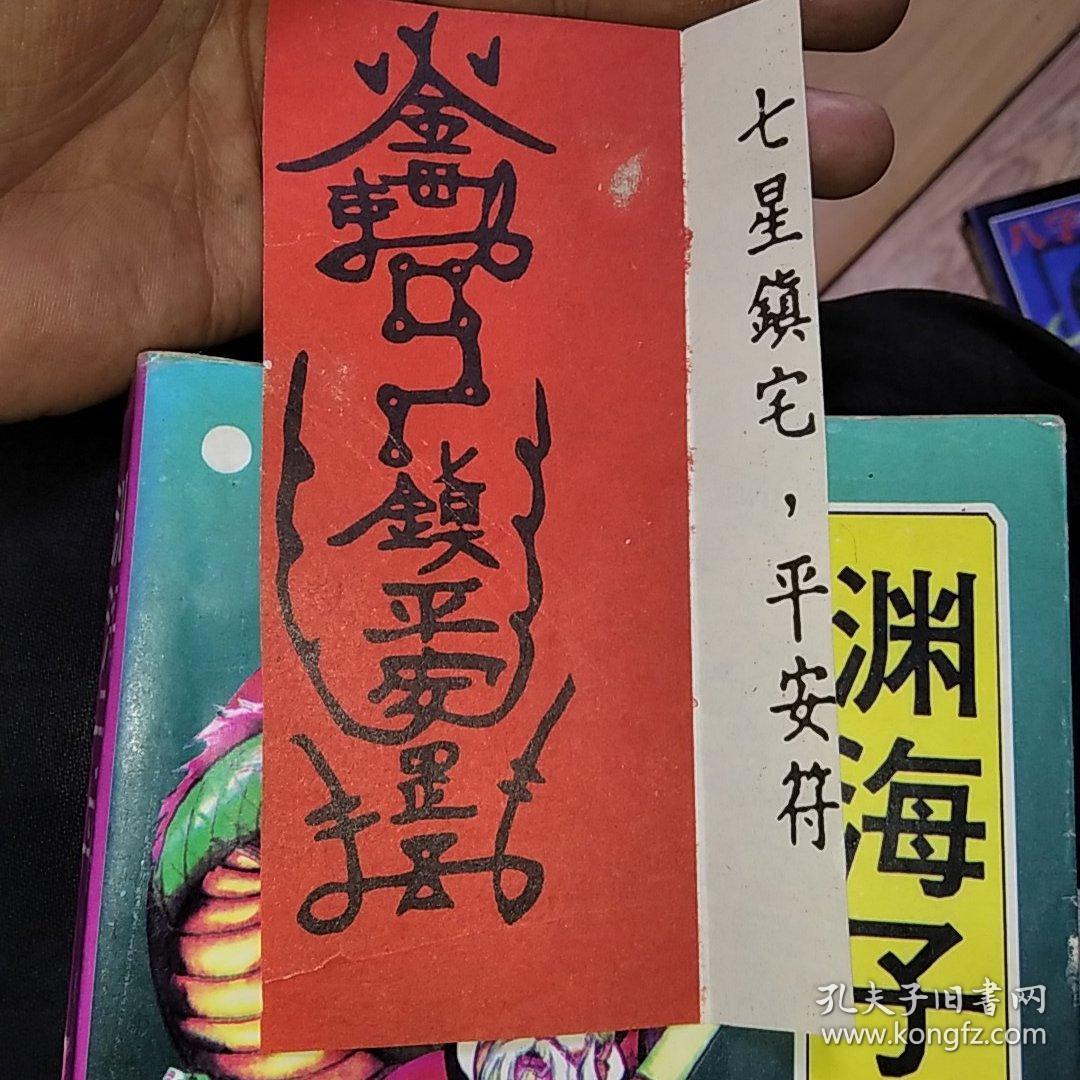 七星鎮宅，平安符
金
西
東
鎮
平
安
渊海子
八字
孔夫子旧書网
www.kongfz.com